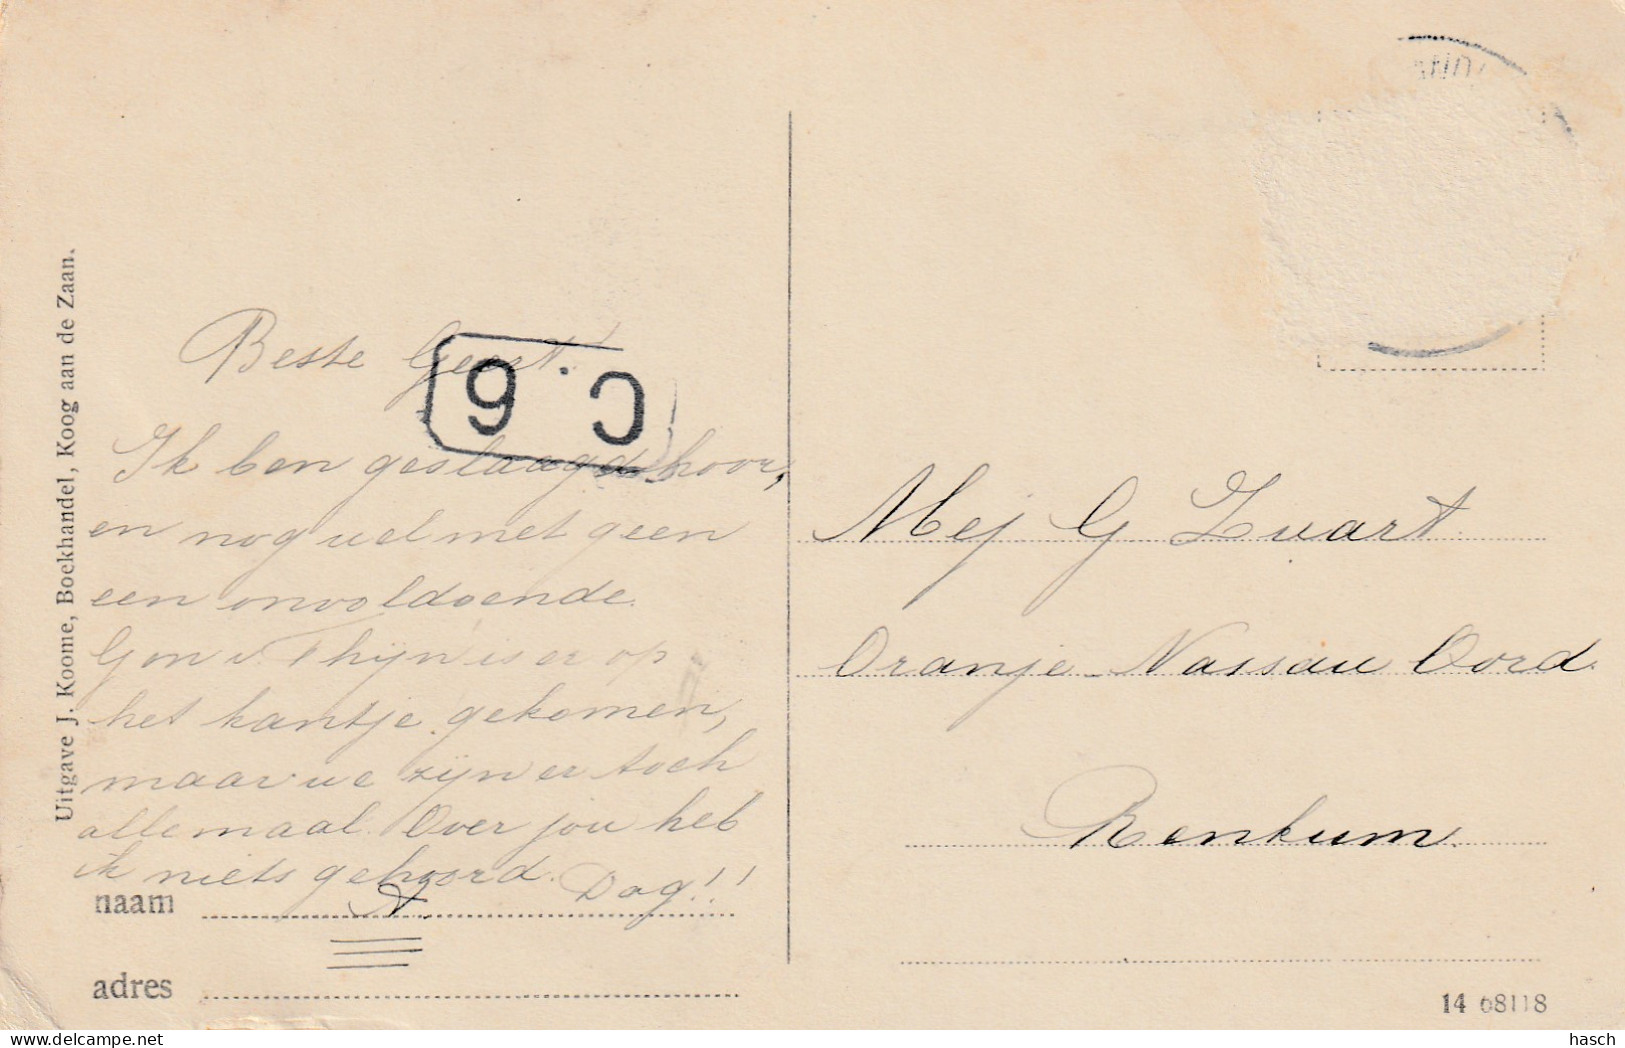 Uitgave J. Koome, Boekhandel, Koog aan de Zaan.
Beste Geert!
C. 6
Ik ben geslaagd hoor,
en nog wel met geen
een onvoldoende.
Gon v. Thijn is er op
het kantje gekomen,
maar we zijn er toch
allemaal. Over jou heb
ik niets gehoord. Dag!!
naam A.
adres
Mej G Zwart
Oranje Nassau Oord.
Renkum.
14 68118
hasch